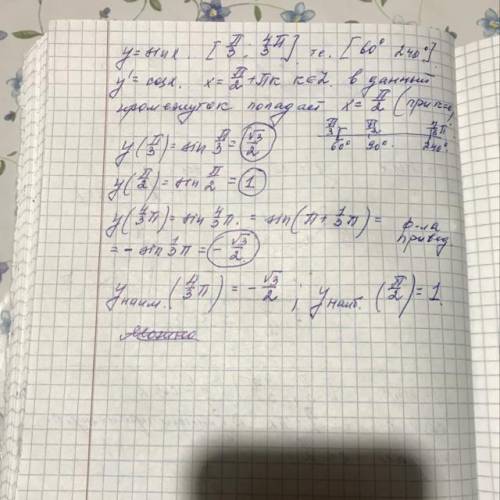 y = sin x [π/3; 4/3 π] т.е. [60° 240°].
y' = cos x. x = π/2 + πk k∈Z. в данный
промежуток попадает x = π/2 (при k=0)
π/3 π/2 4/3 π
60° 90° 240°
y(π/3) = sin π/3 = √3/2
y(π/2) = sin π/2 = 1
y(4/3 π) = sin 4/3 π. = sin(π + 1/3 π) = ф-ла привед
= - sin 1/3 π = - √3/2
y наим. (4/3 π) = - √3/2 ; y наиб. (π/2) = 1.